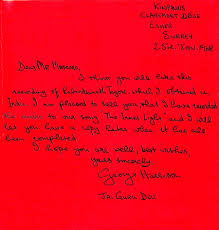 KINFAUNS
CLAREMONT DRIVE
ESHER
SURREY
Dear Mr Mascaro,
I think you will like this
recording of Rabindranath Tagore which I obtained in
India. I am pleased to tell you that I have recorded
the music to our song "The Inner Light" and I will
let you have a copy
been completed
I hope you are well, best wishes
yours sincerely
George Harrison
Jai Guru Dev